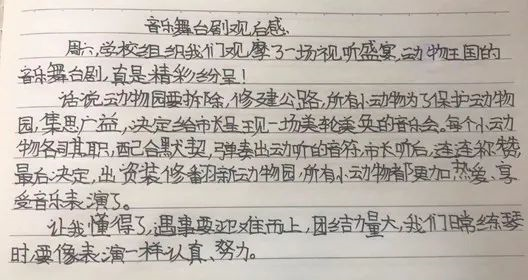 音乐舞台剧观后感.
周六,学校组织我们观摩了一场视听盛宴,动物王国的
音乐舞台剧,真是精彩纷呈!
话说,动物园要拆除,修建公路,所有小动物为了保护动物
园,集思广益,决定给市长呈现一场美轮美奂的音乐会。每个小动
物各司其职,配合默契,弹奏出动听的音符,市长听后,连连称赞,
最后决定,出资装修翻新动物园,所有小动物都更加热爱、享
受音乐表演了。
让我懂得了,遇事要迎难而上,团结力量大,我们日常练琴
时,要像表演一样认真、努力。